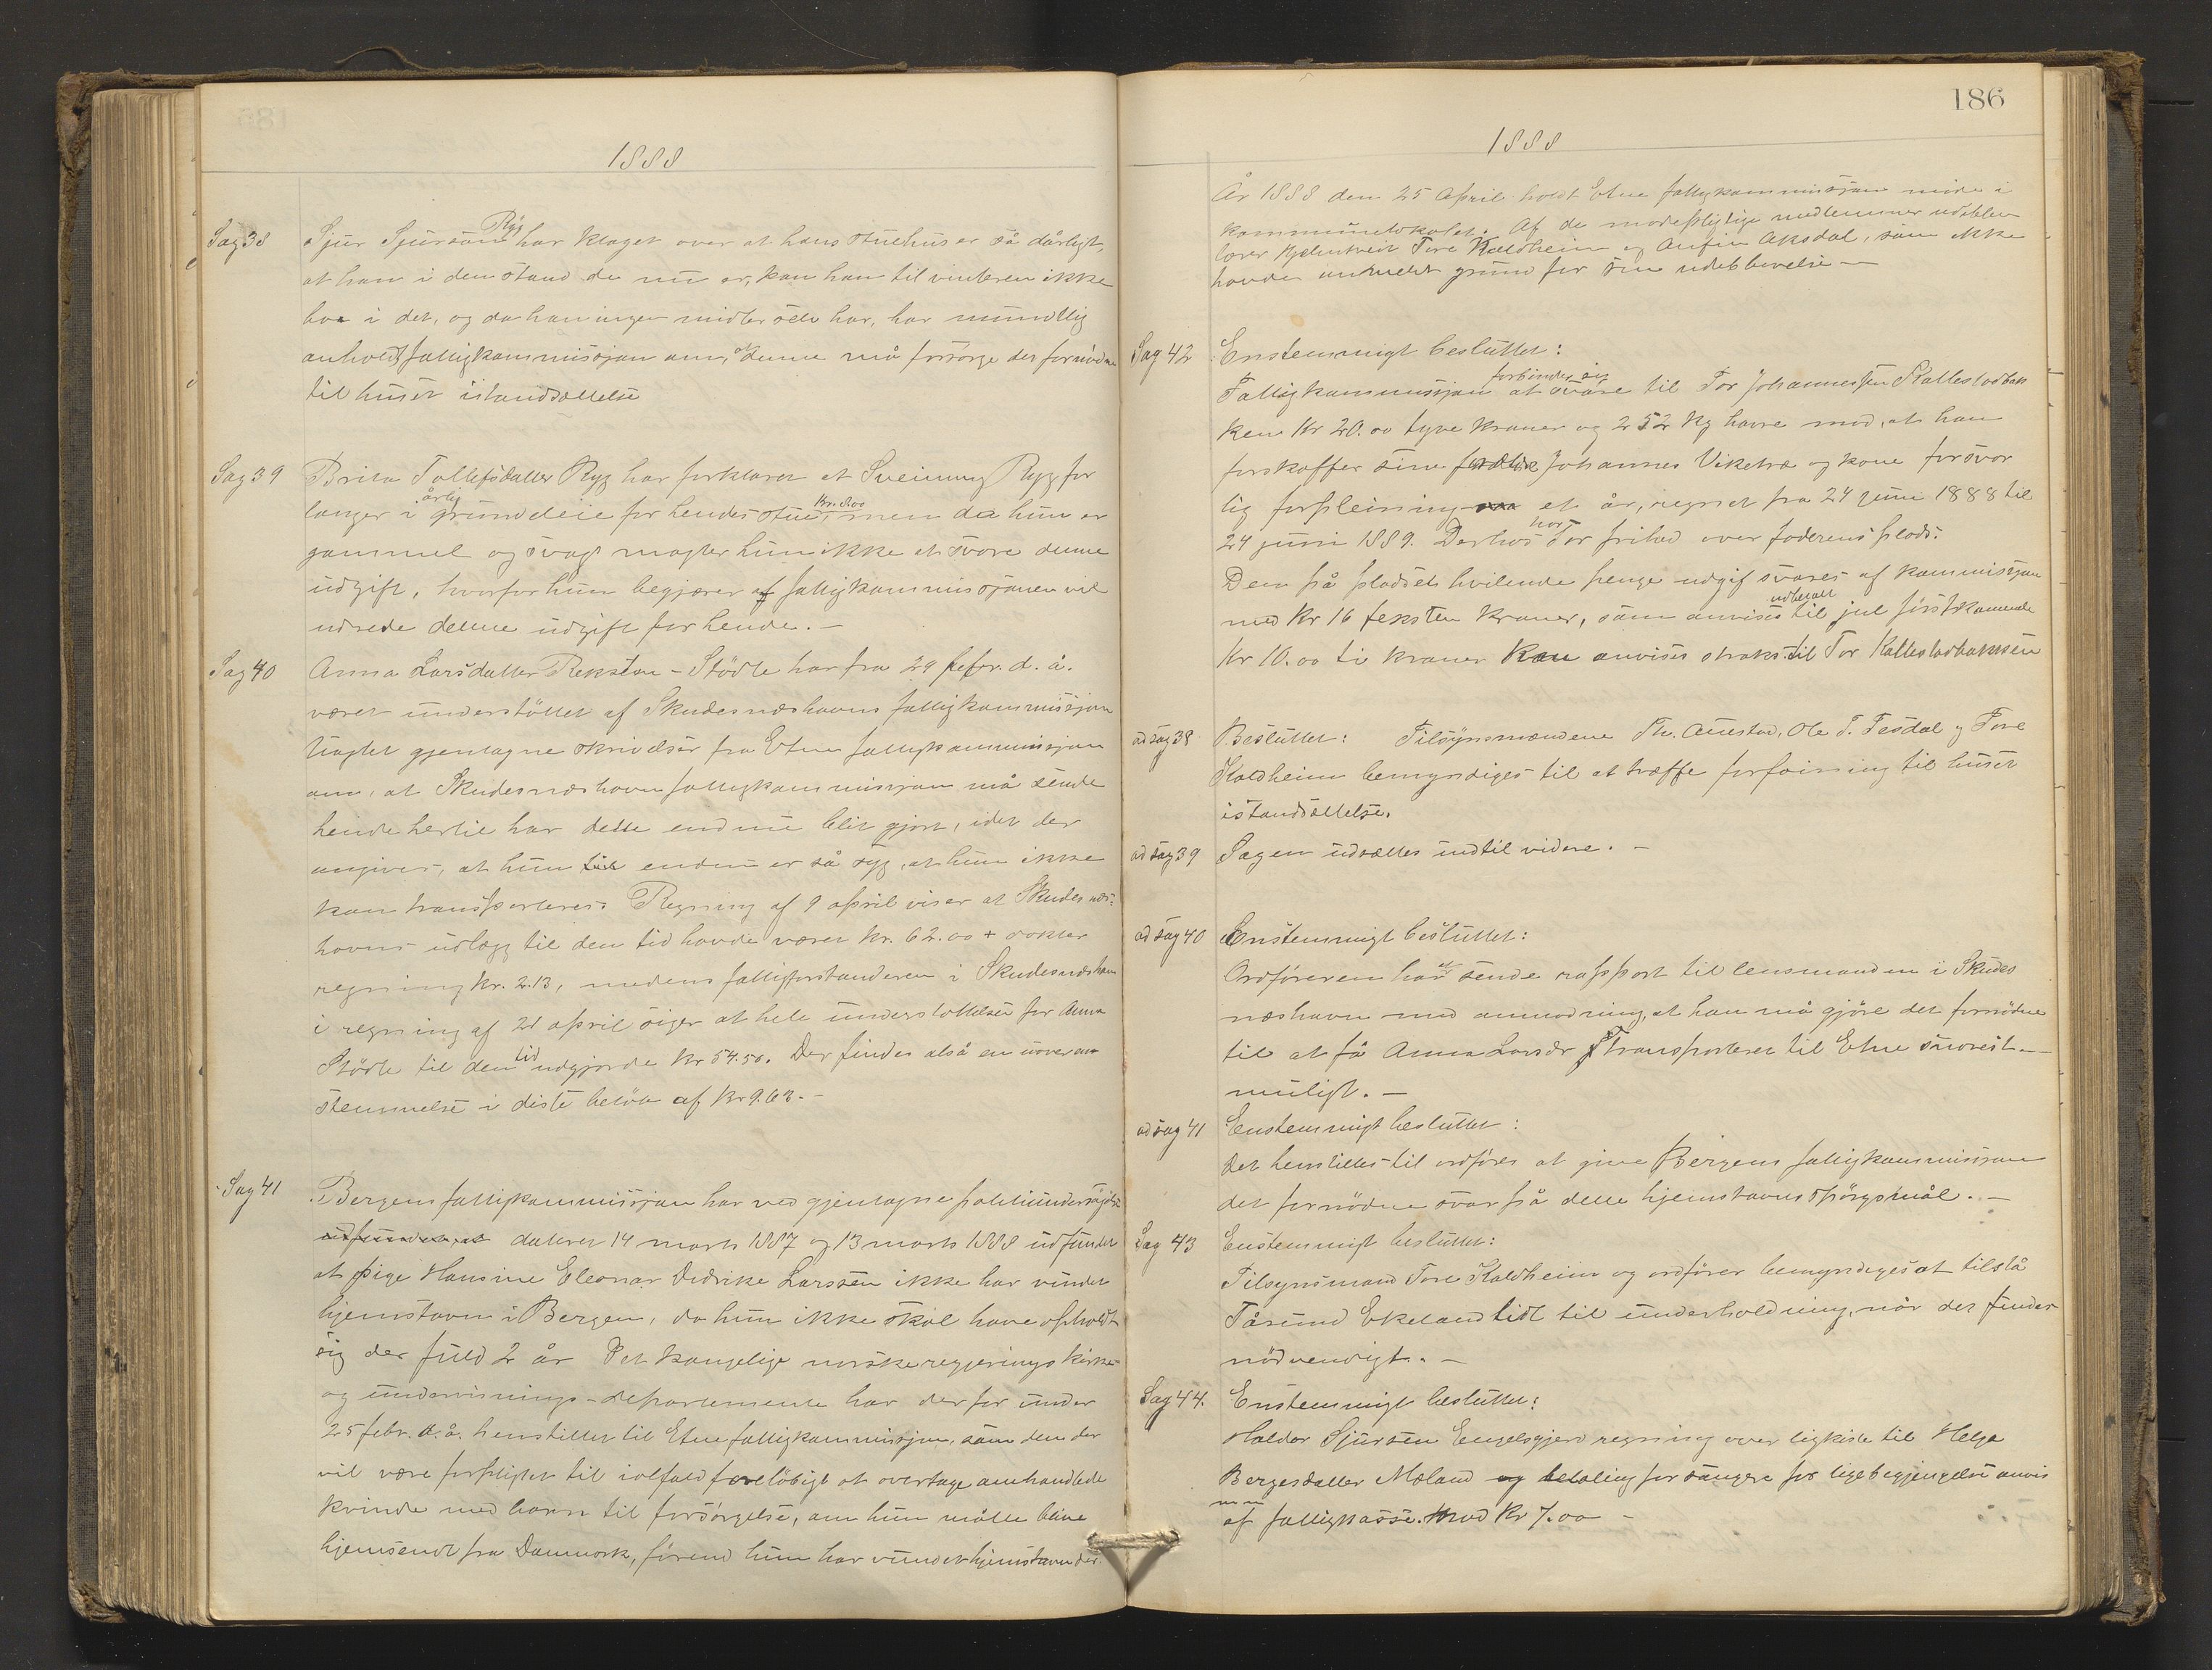 1888
Sag 38 Sjur Sjursøn Ryg har klaget over at hans stuehus er så dårligt,
at han i den stand de nu er, kan han til vinteren ikke
boa i det, og da han ingen midler selv har, har mundtlig
anholdt fattigkommissjon om, at denne må forsørge det fornødne
til huset istandsættelse
Sag 39 Brita Tollefsdatter Ryg har forklaret at Sveinung Ryg for
langer i årlig grundleie for hendes stue, Kr. 8.00 men da hun er
gammel og svagt magter hun ikke at svare denne
udgift, hvorfor hun begjærer af fattigkommissjonen vil
udrede denne udgift for hende. —
Sag 40 Anna Larsdatter Reksten - Stödle har fra 29 febr. d. å.
været understöttet af Skudesnæshavns fattigkommissjon
Uagtet gjentagne skrivelser fra Etne fattigkommissjon
om, at Skudesnæshavn fattigkommissjon må sende
hende hertil har dette endnu blit gjort, idet der
angives, at hun til endnu er så syg, at hun ikke
kan transporteres. Regning af 9 april viser at Skudesnæs-
havns udlæg til den tid havde været kr. 62.00 + dokter
regning kr. 2.13, medens fattigforstanderen i Skudesnæshavn
i regning af 21 april siger at hele understöttelsen for Anna
Stödle til den tid udgjorde kr 54.50. Der findes altså en uoverens
stemmelse i diste belöb af kr 9.63. —
Sag 41 Bergens fattigkommissjon har ved gjentagne politiundersögelse
udfundet, at dateret 14 marts 1887 og 13 marts 1888 udfundet
at pige Hansine Eleonar Didrike Larssen ikke har vundet
hjemstavn i Bergen, da hun ikke skal have opholdt
sig der fuld 2 år Det kongelige norske regjerings kirke-
og undervisnings-departemente har derfor under
25 febr. d. å. henstillet til Etne fattigkommissjon, som den der
vil være forpligtet til ialfald foreløbigt at overtage omhandlede
kvinde med barn til forsörgelse, om hun måtte blive
hjemsendt fra Danmark, förend hun har vundet hjemstavn der.
186
1888
År 1888 den 25 April holdt Etne fattigkommissjon möde i
kommunelokalet. Af de mödepligtige medlemmer udeblev
lærer Kjelntveit Tore Kaldheim og Anfin Aksdal, som ikke
havde anmeldt grund for sin udeblivelse —
Sag 42 Enstemmigt besluttet:
Fattigkommissjon forbinder sig at svare til Tor Johannessen Kalleslodbak
ken Kr 20.00 tyve kroner og 252 kg havre mod, at han
forskaffer sine forældre Johannes Viketræ og kone forsvar
lig forpleining et år, regnet fra 24 juni 1888 til
24 juni 1889. Derhos har Tor frihed over faderens plads.
Den på pladsen hvilende penge udgif svares af kommissjon
med Kr 16 seksten kroner, som anvises udbetalt til jul förstkommende
Kr 10.00 ti kroner kan anvises straks til Tor Kalleslodbakken
ad sag 38 Besluttet: Tilsynsmændene Th. Auestad, Ole T. Tesdal og Tore
Kaldheim bemyndiges til at træffe forföining til huset
istandsættelse.
ad sag 39 Sagen udsættes indtil videre. —
ad sag 40 Enstemmigt besluttet:
Ordföreren har at sende rapport til lensmanden i Skudes
næshavn med anmodning, at han må gjöre det fornödne
til at få Anna Larsdr transporteret til Etne snarest—
muligt. —
ad sag 41 Enstemmigt besluttet:
Det henstilles til ordförer at give Bergens fattigkommissjon
det fornödne svar på dette hjemstavns spörgsmål. —
Sag 43 Enstemmigt besluttet:
Tilsynsmand Tore Kaldheim og ordförer bemyndiges at tilstå
Tåsund Ekeland lidt til underholdning, når det findes
nödvendigt. —
Sag 44. Enstemmigt besluttet:
Haldor Sjursen Engelsgjerd regning over ligkiste til Helga
Bergesdatter Mæland og betaling for sangere for ligbegjengelse anvis
af fattigkasse. Mod Kr 7.00 —